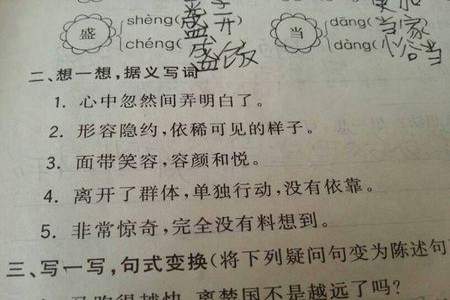 盛 shèng(盛开) 当 dāng(当家)
chéng(盛饭) dàng(恰当)
二、想一想，据义写词
1. 心中忽然间弄明白了。
2. 形容隐约，依稀可见的样子。
3. 面带笑容，容颜和悦。
4. 离开了群体，单独行动，没有依靠。
5. 非常惊奇，完全没有料想到。
三、写一写，句式变换(将下列疑问句变为陈述句
马跑得越快，离楚国不是越远了吗?